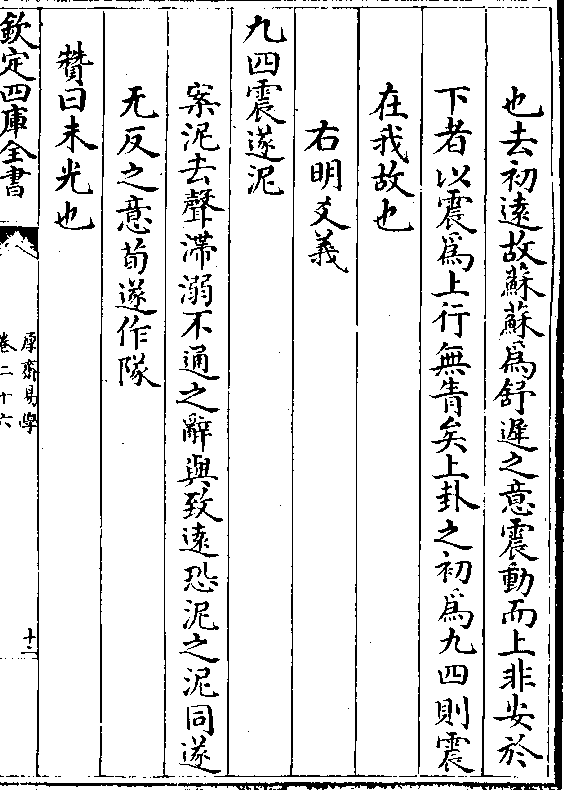 也去初遠故蘇蘇爲舒遲之意震動而上非安於
下者以震爲上行無眚矣上卦之初爲九四則震
在我故也
右明爻義
九四震遂泥
案泥去聲滯溺不通之辭與致遠恐泥之泥同遂
无反之意荀遂作隊
贊曰未光也
欽定四庫全書
厚齋易學
卷二十六
十三